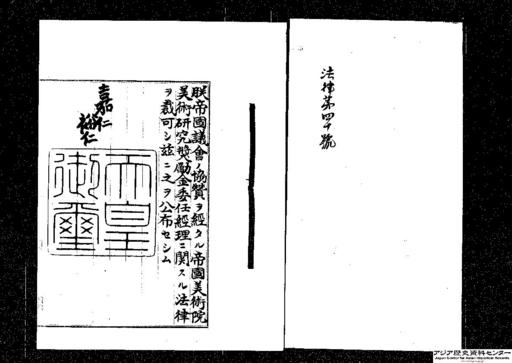 法律第四十號
朕帝國議會ノ協贊ヲ經タル帝國美術院
美術研究奬勵金委任經理ニ關スル法律
ヲ裁可シ茲ニ之ヲ公布セシム
嘉仁
裕仁
天皇
御璽
アジア歴史資料センター
Japan Center for Asian Historical Records